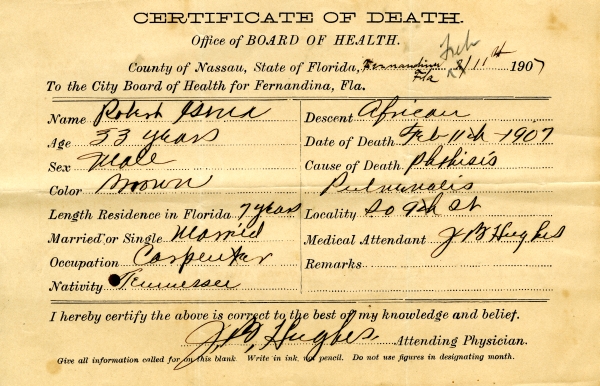 CERTIFICATE OF DEATH.
Office of BOARD OF HEALTH.
Feb
County of Nassau, State of Florida, Fernandina Fla 11th 1907
To the City Board of Health for Fernandina, Fla.
Name Robert
Age 33 years
Sex Male
Color Brown
Length Residence in Florida 7 years
Married or Single Married
Occupation Carpenter
Nativity Tennessee
Descent African
Date of Death Feb 11th - 1907
Cause of Death Phthisis
Pulmonalis
Locality So 9th St
Medical Attendant J B Hughes
Remarks
I hereby certify the above is correct to the best of my knowledge and belief.
Hughes Attending Physician.
Give all information called for on this blank. Write in ink, not pencil. Do not use figures in designating month.